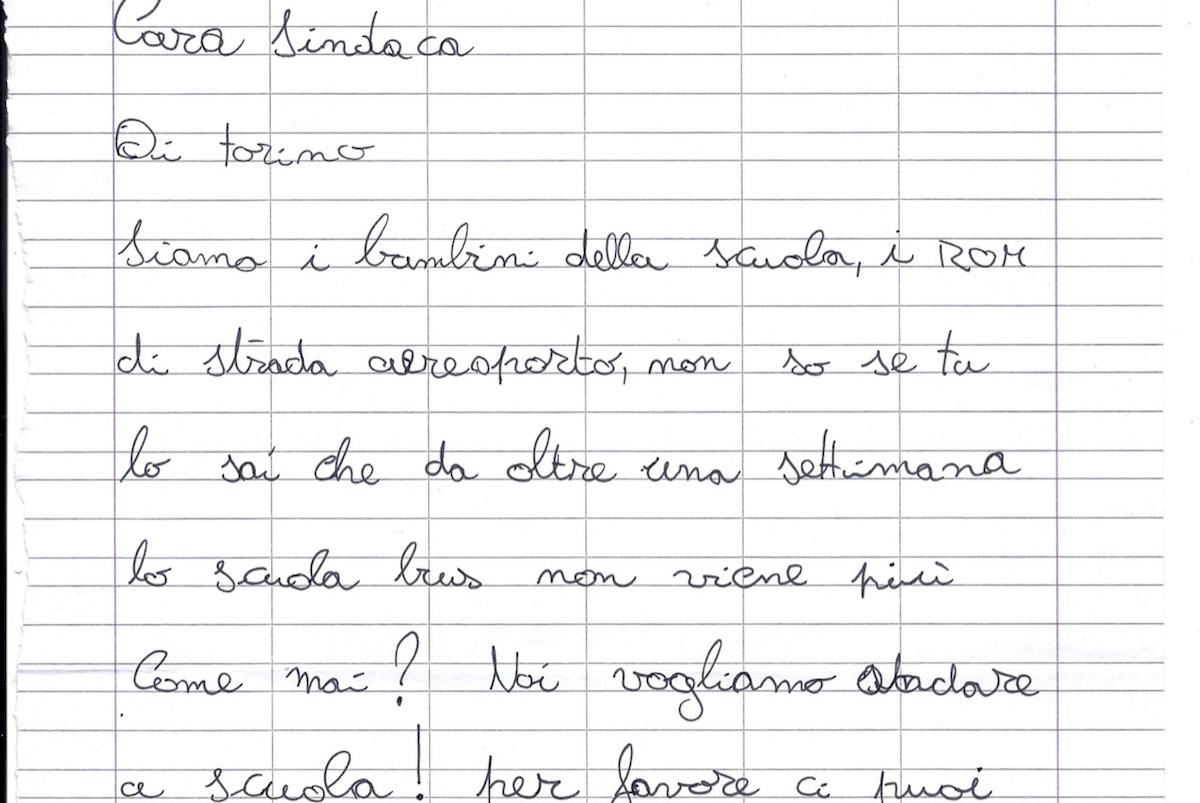 Cara Sindaca
Di torino
Siamo i bambini della scuola, i ROM
di strada aereoporto, non so se tu
lo sai che da oltre una settimana
lo scuola bus non viene più
Come mai? Noi vogliamo
a scuola! per favore ci puoi